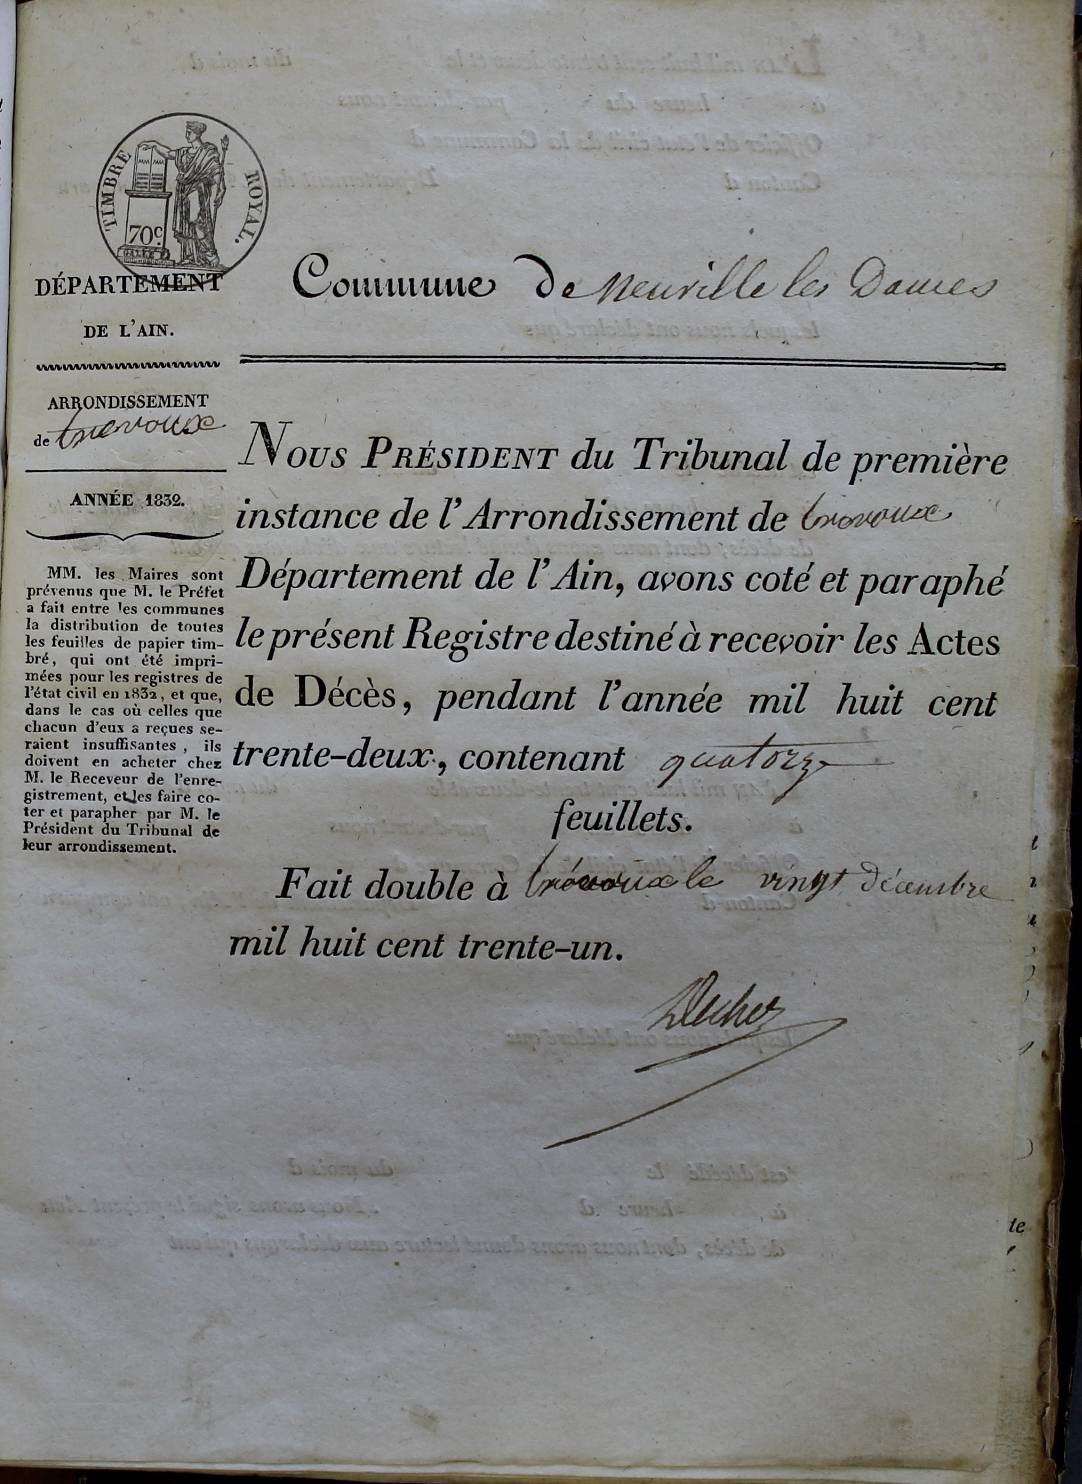 TIMBRE ROYAL.
70c
DÉPARTEMENT
DE L'AIN.
Commune de Neuville les Dames
ARRONDISSEMENT
de trevoux
ANNÉE 1832.
MM. les Maires sont
prévenus que M. le Préfet
a fait entre les communes
la distribution de toutes
les feuilles de papier tim-
bré, qui ont été impri-
mées pour les registres de
l'état civil en 1832, et que,
dans le cas où celles que
chacun d'eux a reçues se-
raient insuffisantes, ils
doivent en acheter chez
M. le Receveur de l'enre-
gistrement, et les faire co-
ter et parapher par M. le
Président du Tribunal de
leur arrondissement.
NOUS PRÉSIDENT du Tribunal de première
instance de l'Arrondissement de trevoux
Département de l'Ain, avons coté et paraphé
le présent Registre destiné à recevoir les Actes
de Décès, pendant l'année mil huit cent
trente-deux, contenant quatorze
feuillets.
Fait double à trévoux le vingt décembre
mil huit cent trente-un.